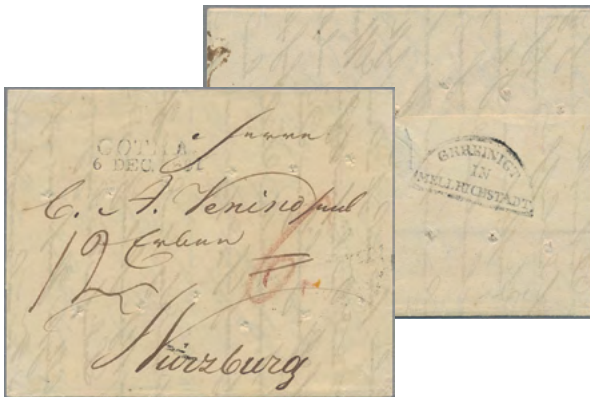 GOTHA
6 DEC.
Herrn
C. A. Venino seel
12 Erben
Würzburg
GEREINIGT
IN
MELLRICHSTADT